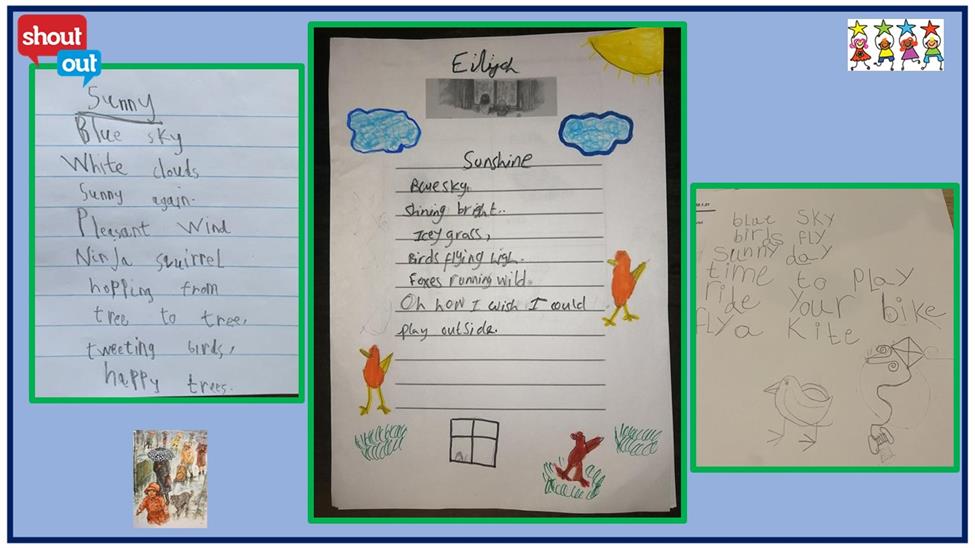 shout
out
Sunny
Blue sky
White clouds
Sunny again.
Pleasant Wind
Ninja squirrel
hopping from
tree to tree,
tweeting birds,
happy trees.
Sunshine
Blue sky,
Shining bright..
Icey grass,
Birds flying high.
Foxes running wild.
Oh how I wish I could
play outside.
blue sky
birds fly
sunny day
time to play
ride your bike
fly a kite